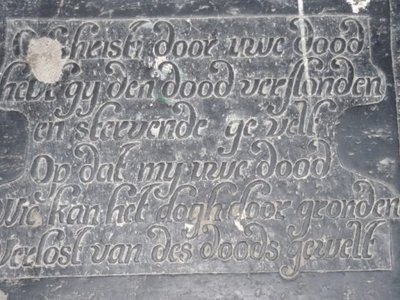 O Christi door uwe dood
hebt gy den dood verslonden
en stervende ge velt
Op dat my uwe dood
Wie kan het dogh door gronden
Verlost van des doods gewelt